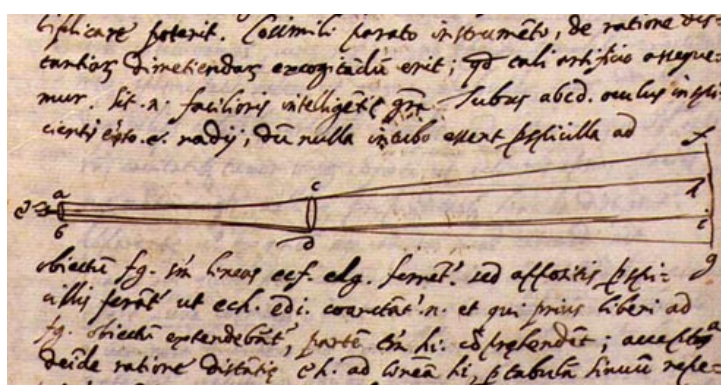 tiplicare poterit. Cosimili parato instrumẽto, de ratione dis-
tantiaꝝ dimetiendaꝝ excogitãdũ erit; qđ tali artificio asseque-
mur. Sit .n. facilioris intelligẽtię grã Tubus abcd. oculus inspi-
cientis esto .e. radij, dũ nulla in tubo essent pspicilla ad
a
c
f
h
e
b
d
i
g
obiectũ fg. lineas ecf. edg. ferrẽt.' sed appositis pspi-
cillis ferãt' ut ech. edi. coarctãt'.n. et qui prius liberi ad
fg. obiectũ extendebãt', partẽ tm̃ hi. cõprehendẽt; accepta
deĩde ratione distãtię eh. ad lineã hi, p tabulã sinuũ repe-